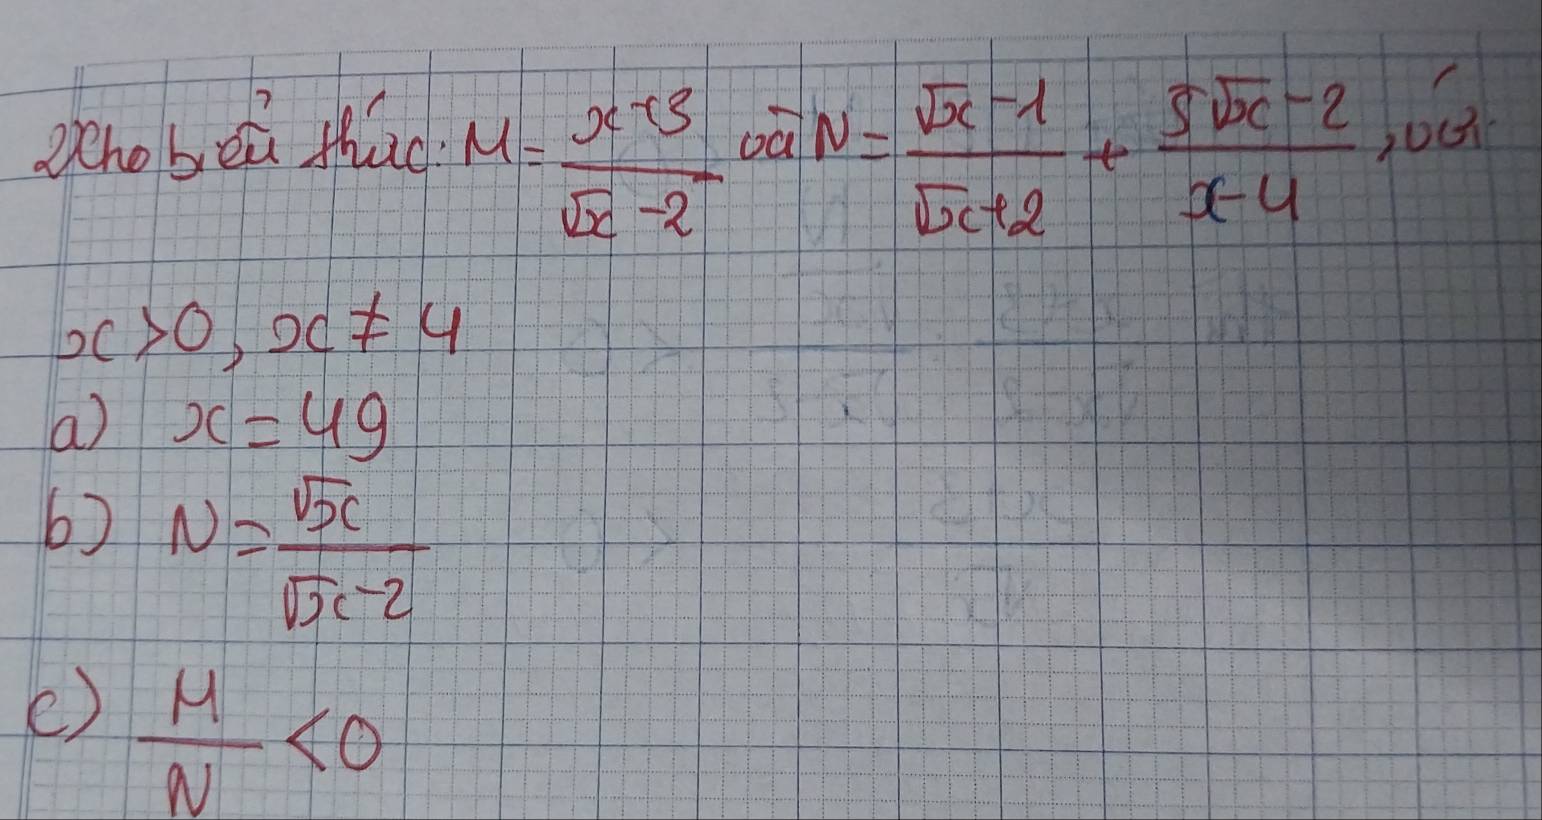 2) Cho biểu thức: M = \frac{x+3}{\sqrt{x}-2} và N = \frac{\sqrt{x}-1}{\sqrt{x}+2} + \frac{5\sqrt{x}-2}{x-4}, với
x > 0, x ≠ 4
a) x = 49
b) N = \frac{\sqrt{x}}{\sqrt{x}-2}
c) \frac{M}{N} < 0